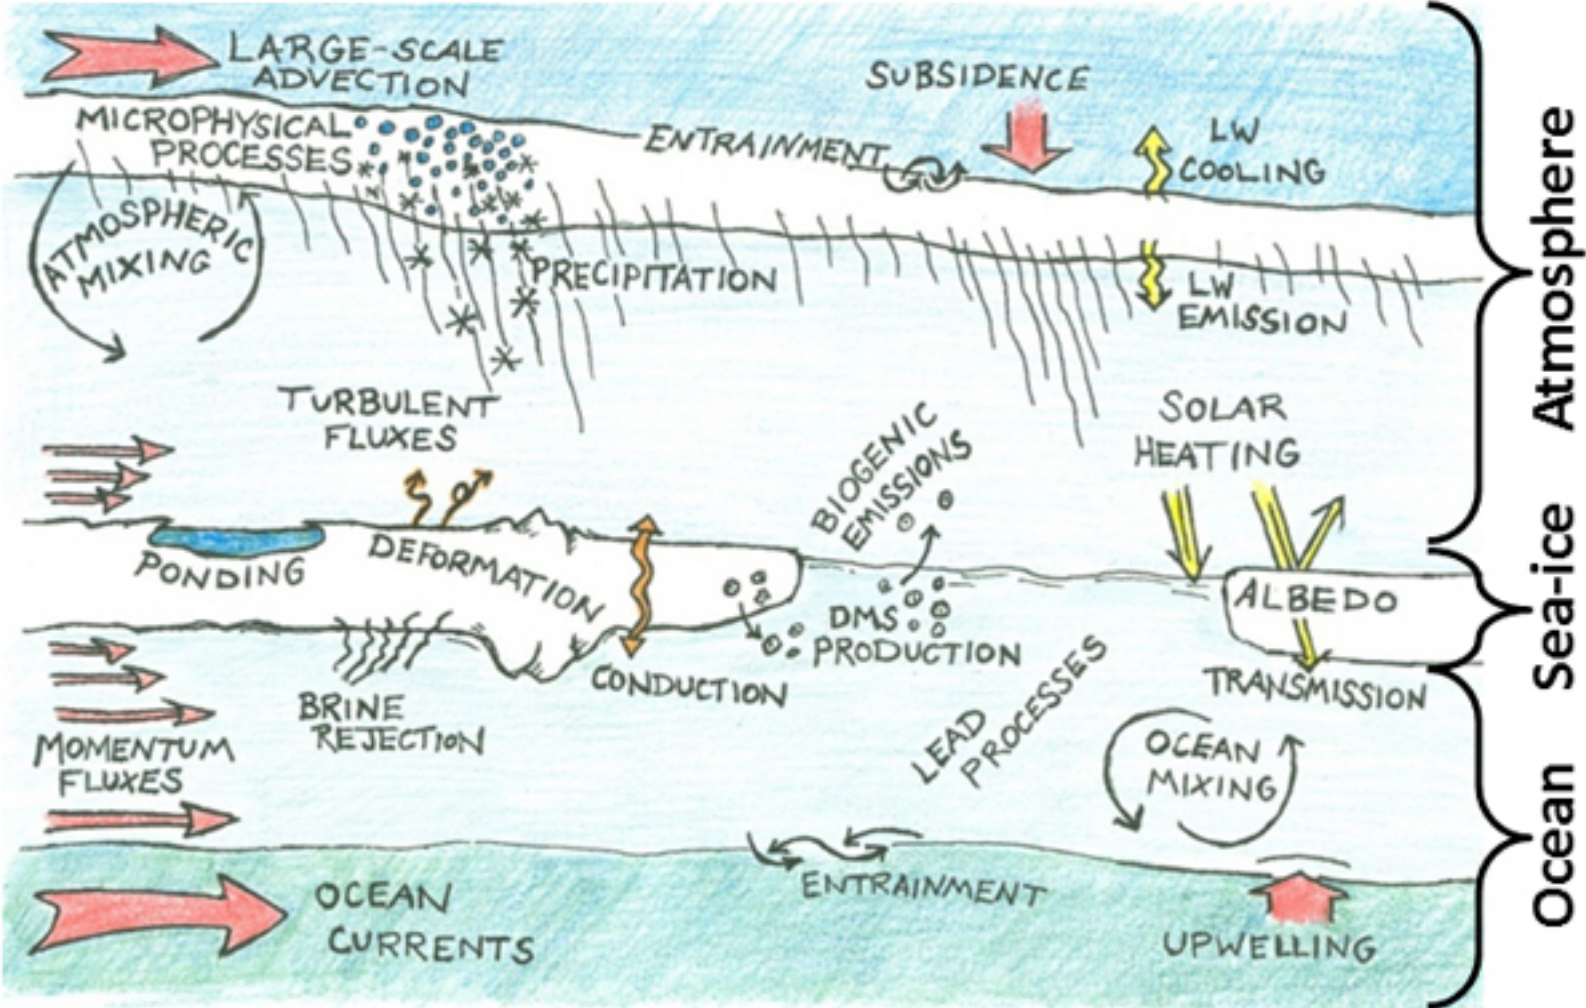 LARGE-SCALE
ADVECTION
SUBSIDENCE
MICROPHYSICAL
PROCESSES
ENTRAINMENT
LW
COOLING
ATMOSPHERIC
MIXING
PRECIPITATION
LW
EMISSION
TURBULENT
FLUXES
BIOGENIC
EMISSIONS
SOLAR
HEATING
PONDING
DEFORMATION
ALBEDO
DMS
PRODUCTION
CONDUCTION
TRANSMISSION
BRINE
REJECTION
MOMENTUM
FLUXES
LEAD
PROCESSES
OCEAN
MIXING
ENTRAINMENT
OCEAN
CURRENTS
UPWELLING
Atmosphere
Sea-ice
Ocean